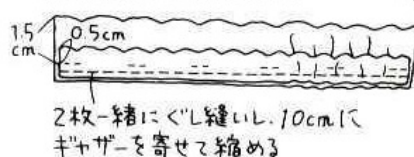 1.5
cm
0.5cm
2枚一緒にぐし縫いし、10cmに
ギャザーを寄せて縮める